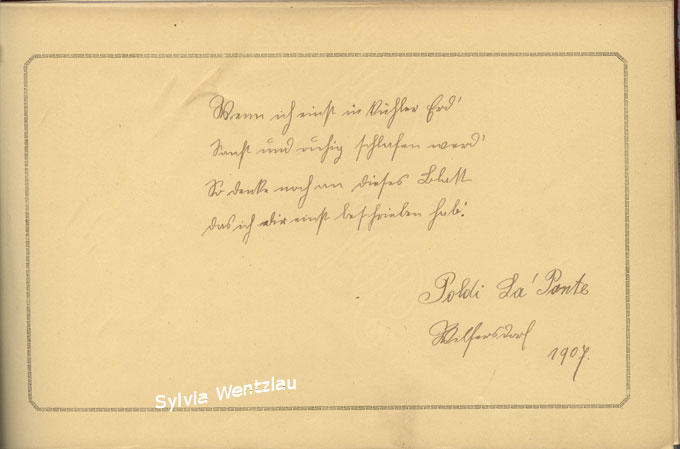 Wenn ich einst in kühler Erd'
Sanft und ruhig schlafen werd'
So denke noch an dieses Blatt
das ich dir einst beschrieben hab'.
Poldi La' Pante
Wilfersdorf
1907.
Sylvia Wentzlau